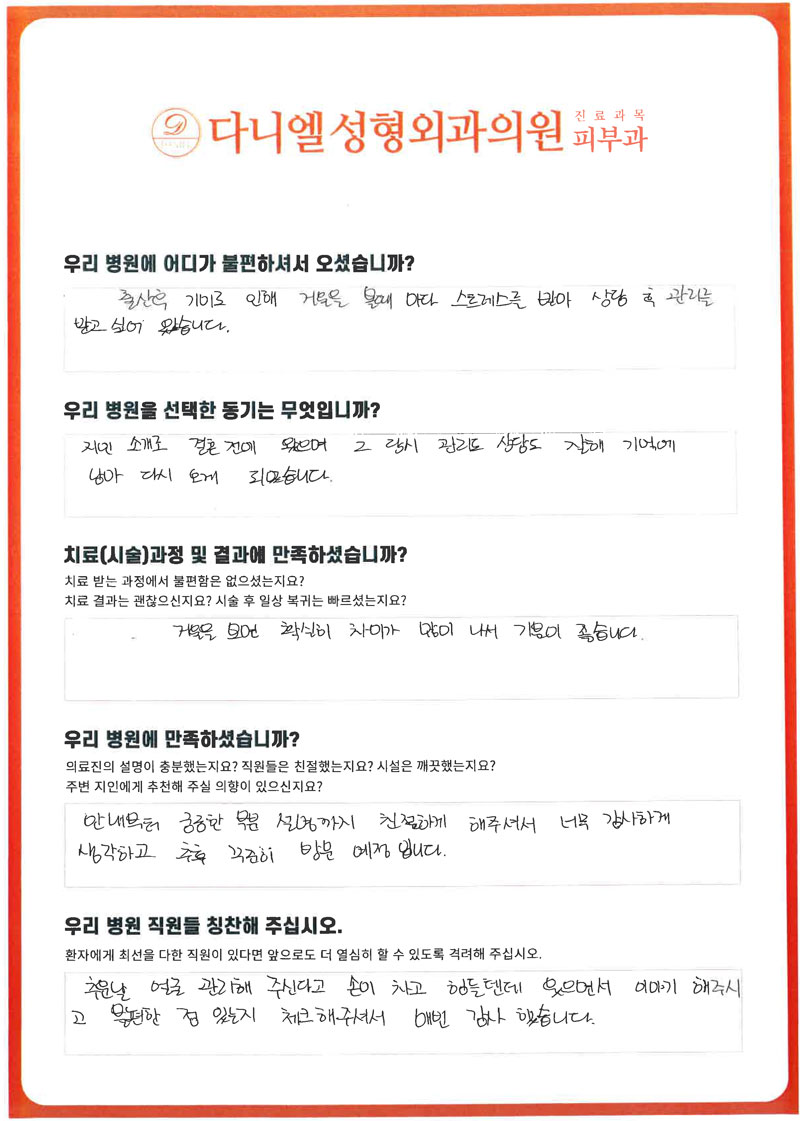 다니엘성형외과의원 진료과목 피부과
우리 병원에 어디가 불편하셔서 오셨습니까?
출산후 기미로 인해 거울을 볼때 마다 스트레스를 받아 상담 후 관리를
받고 싶어 왔습니다.
우리 병원을 선택한 동기는 무엇입니까?
지인 소개로 결혼 전에 왔으며 그 당시 관리도 상담도 잘해 기억에
남아 다시 오게 되었습니다.
치료(시술)과정 및 결과에 만족하셨습니까?
치료 받는 과정에서 불편함은 없으셨는지요?
치료 결과는 괜찮으신지요? 시술 후 일상 복귀는 빠르셨는지요?
거울을 보면 확실히 차이가 많이 나서 기분이 좋습니다.
우리 병원에 만족하셨습니까?
의료진의 설명이 충분했는지요? 직원들은 친절했는지요? 시설은 깨끗했는지요?
주변 지인에게 추천해 주실 의향이 있으신지요?
안내부터 궁금한 부분 설명까지 친절하게 해주셔서 너무 감사하게
생각하고 추후 꾸준히 방문 예정 입니다.
우리 병원 직원들 칭찬해 주십시오.
환자에게 최선을 다한 직원이 있다면 앞으로도 더 열심히 할 수 있도록 격려해 주십시오.
추운날 얼굴 관리해 주신다고 손이 차고 힘들텐데 웃으면서 이야기 해주시
고 불편한 점 있는지 체크해주셔서 매번 감사 했습니다.